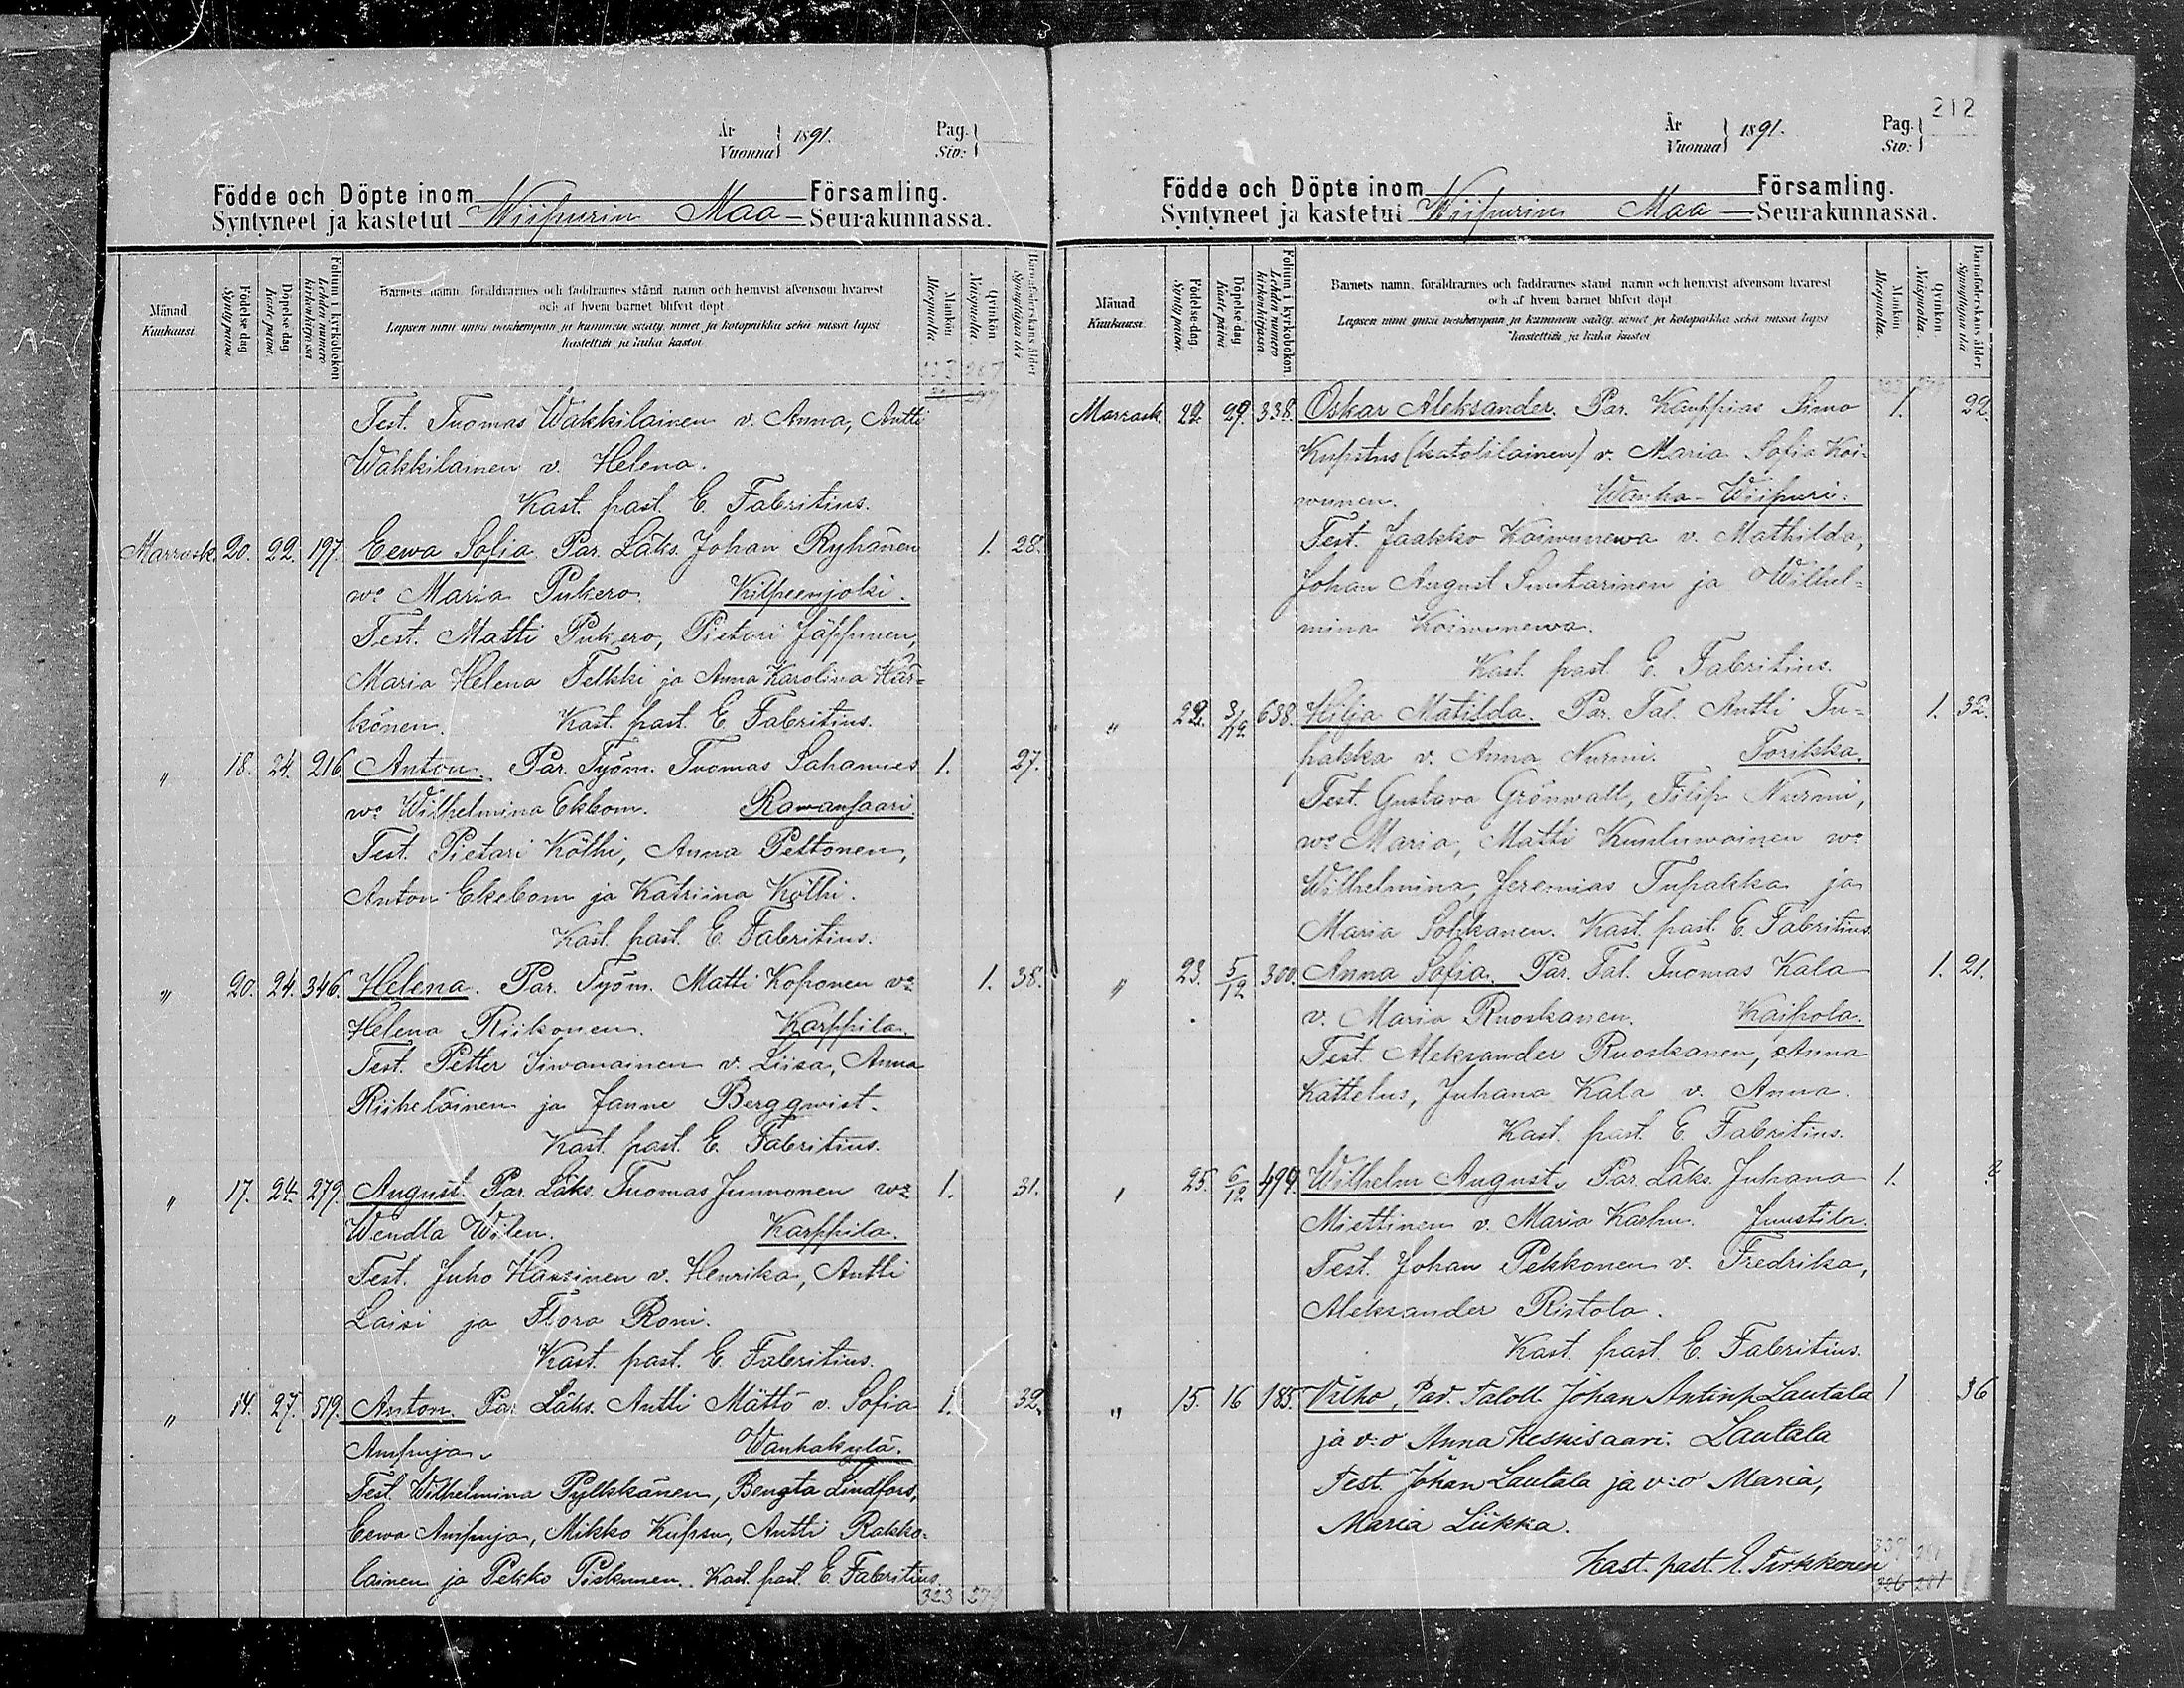 År Vuonna 1891. Pag. Siv:
Födde och Döpte inom Församling.
Syntyneet ja kastetut Wiipurin Maa- Seurakunnassa.
Månad Kuukausi
Födelse dag Syntypäivä
Döpelse dag Kaste päivä
Folium i kyrkoboken Lehden numero kirkonkirjassa
Barnets namn, föräldrarnes och faddrarnes stånd, namn och hemvist äfvensom hvarest
och af hvem barnet blifvit döpt.
Lapsen nimi ynnä vanhempain ja kummein sääty, nimet ja kotopaikka sekä missä lapsi
kastettiin ja kuka kastoi
Mankön Miespuolta
Qvinkön Naispuolta
Barnaföderskans ålder Synnyttäjän ikä
Test. Tuomas Wakkilainen v. Anna, Antti
Wakkilainen v. Helena.
Kast. past. E. Fabritius.
Marrask. 20. 22. 197. Eewa Sofia Par. Läks. Johan Ryhänen 1. 28.
wo Maria Pukero. Kilpeenjoki.
Test. Matti Pukero, Pietari Jäppinen,
Maria Helena Telkki ja Anna Karolina Här-
könen. Kast. past. E. Fabritius.
" 18. 24. 216 Anton. Par. Työm. Tuomas Sahanies 1. 27.
wo Wilhelmina Ekbom. Rawansaari.
Test. Pietari Kölhi, Anna Peltonen,
Anton Ekebom ja Katriina Kölhi.
Kast. past. E. Fabritius.
" 20. 24. 346. Helena. Par. Työm. Matti Koponen vo 1. 38.
Helena Riikonen. Karppila.
Test. Petter Siwanainen v. Liisa, Anna
Riiheläinen ja Janne Bergqwist.
Kast. past. E. Fabritius.
" 17. 24. 279. August. Par. Läks. Tuomas Junnonen wo 1. 31.
Wendla Wilen. Karppila.
Test. Juho Hassinen v. Henrika, Antti
Laisi ja Flora Roni.
Kast. past. E. Fabritius.
" 14. 27. 519. Anton. Par. Läks. Antti Mättö v. Sofia 1. 32.
Ampuja. Wanhakylä.
Test. Wilhelmina Pylkkänen, Bengta Lindfors,
Eewa Ampuja, Mikko Kupsu, Antti Rakko-
lainen ja Pekko Piskunen. Kast. past. E. Fabritius.
323 279
212
År Vuonna 1891. Pag. Siv:
Födde och Döpte inom Församling.
Syntyneet ja kastetut Wiipurin Maa- Seurakunnassa.
Månad Kuukausi
Födelse dag Synty päivä
Döpelse dag Kaste päivä
Folium i kyrkoboken Lehden numero kirkonkirjassa
Barnets namn, föräldrarnes och faddrarnes stånd, namn och hemvist äfvensom hvarest
och af hvem barnet blifvit döpt.
Lapsen nimi ynnä vanhempain ja kummein sääty, nimet ja kotopaikka sekä missä lapsi
kastettiin ja kuka kastoi
Mankön Miespuolta
Qvinkön Naispuolta
Barnaföderskans ålder Synnyttäjän ikä
Marrask. 22. 29. 338. Oskar Aleksander. Par. Kauppias Simo 1. 22.
Kupstus (katolilainen) v. Maria Sofia Koi-
wunen. Wanha-Wiipuri.
Test. Jaakko Koiwunewa v. Mathilda,
Johan August Suutarinen ja Wilhel-
mina Koiwunewa.
Kast. past. E. Fabritius.
" 22. 3/12 638. Hilja Matilda. Par. Tal. Antti Tu- 1. 32.
pakka v. Anna Nurmi. Torikka.
Test. Gustava Grönwall, Filip Nurmi,
wo Maria, Matti Kuuluwainen wo
Wilhelmina, Jeremias Tupakka ja
Maria Solkkanen. Kast. past. E. Fabritius.
" 23. 5/12 300. Anna Sofia. Par. Tal. Tuomas Kala 1. 21.
v. Maria Ruoskanen. Kaipola.
Test. Aleksander Ruoskanen, Anna
Kattelus, Juhana Kala v. Anna.
Kast. past. E. Fabritius.
" 25. 6/12 499. Wilhelm August. Par. Läks. Juhana 1. ?
Miettinen v. Maria Karhu. Juustila.
Test. Johan Pekkonen v. Fredrika,
Aleksander Ristola.
Kast. past. E. Fabritius.
" 15. 16 185. Vilho, Par. Taloll. Johan Antinp. Lautala 1 36
ja v:o Anna Keskisaari. Lautala
Test. Johan Lautala ja v:o Maria,
Maria Liikka.
Kast. past. A. Tirkkonen
326 281